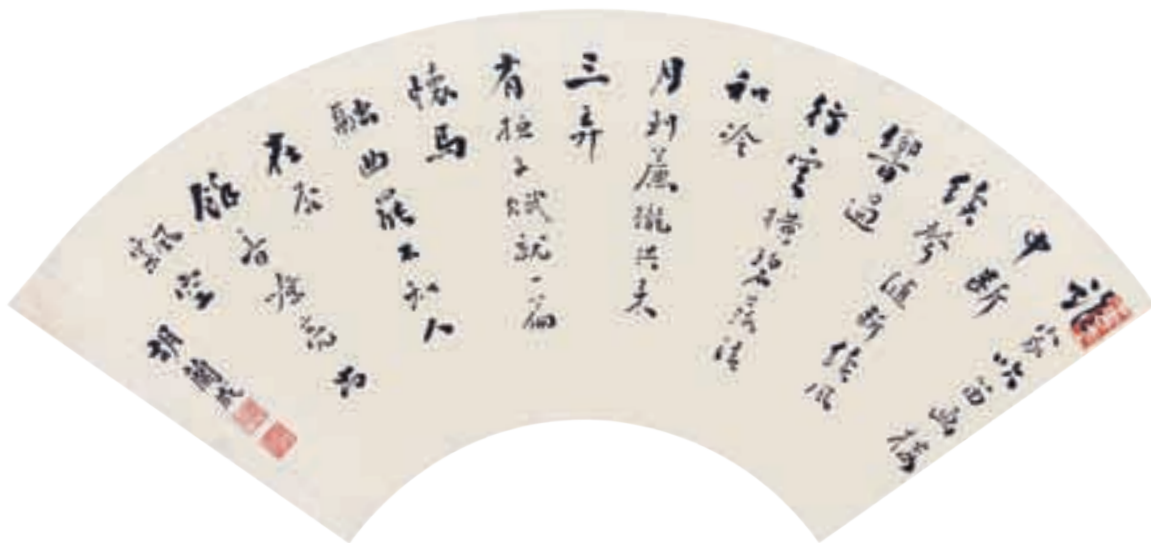 誰家吹笛畫樓
中斷
續聲隨斷續風
響遏
行雲橫碧落清
和冷
月到簾櫳興來
三弄
有桓子賦就一篇
懷馬
融曲罷不知人
在否
餘音嘹亮尚
飄空
胡蘭成